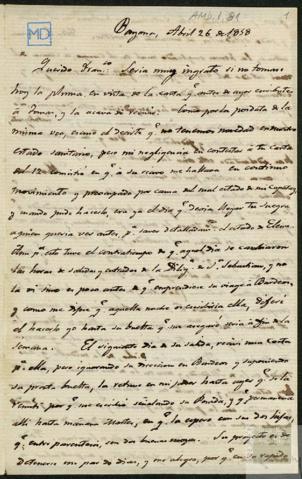 AMD.1.81
1
MD
Bayona, Abril 26 de 1858
Querido Fran.co Seria muy ingrato si no tomase
hoy la pluma en vista de la carta q.e antes de ayer
á Tomas, y la acava de recivir. Como por la postdata de la
misma vea, escuso el decirte q.e no tenemos novedad en nuestro
estado sanitario, pero mi negligencia en contestar á tu carta
del 12 q.e á su recivo me hallava en continuo
movimiento y preocupado por causa del mal estado de mi
y cuando pude hacerlo, era ya el dia q.e devia llegar tu Suegra
á quien queria ver antes, p.a saver detalladam.te el estado de Elena
p.o esto tuve el contratiempo de q.e aquel dia se cambiaron
las horas de salidas y entradas de la Dilig.a de S.n Sebastian, y no
la vi sino es poco antes de q.e emprendiese su viage á Burdeos,
y como me dijese q.e aquella noche os escribiria ella, deferí
el hacerlo yo hasta su buelta q.e me aseguró seria á fin de la
semana. El siguiente dia de su salida, recivi una carta
p.a ella, pero ignorando su direccion en Burdeos y suponiendo
su pronta buelta, la retuve en mi poder hasta ayer q.e se la
remití por q.e me escribió señalando su Posada, y q.e permanecerá
alli hasta mañana Martes, en q.e la espero con sus dos hijas
q.e entre parentesis, son dos buenas mozas. Su proyecto es de
detenerse un par de dias, y me alegro, por q.e en su rapido